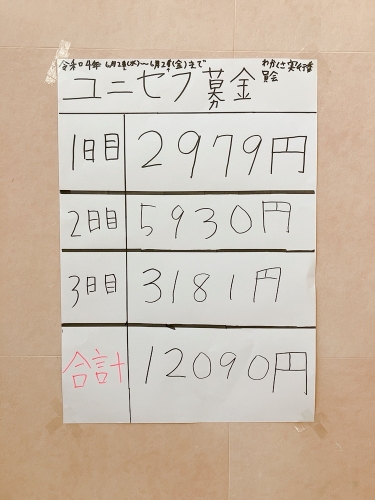 令和4年 6月22日(水)～6月24日(金)まで わかくさ実行委員会
ユニセフ募金
1日目 2979円
2日目 5930円
3日目 3181円
合計 12090円